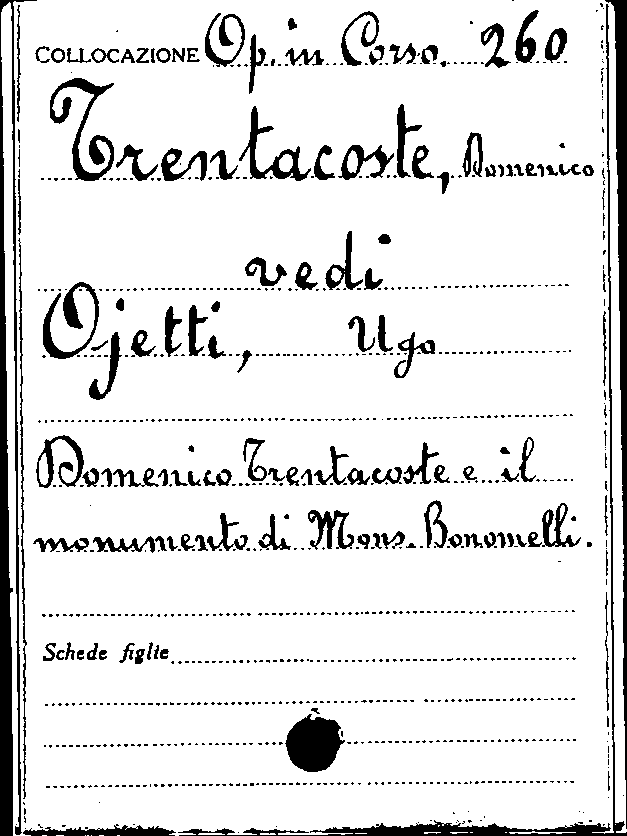 COLLOCAZIONE Op. in Corso. 260
Trentacoste, Domenico
vedi
Ojetti, Ugo
Domenico Trentacoste e il
monumento di Mons. Bonomelli.
Schede figlie